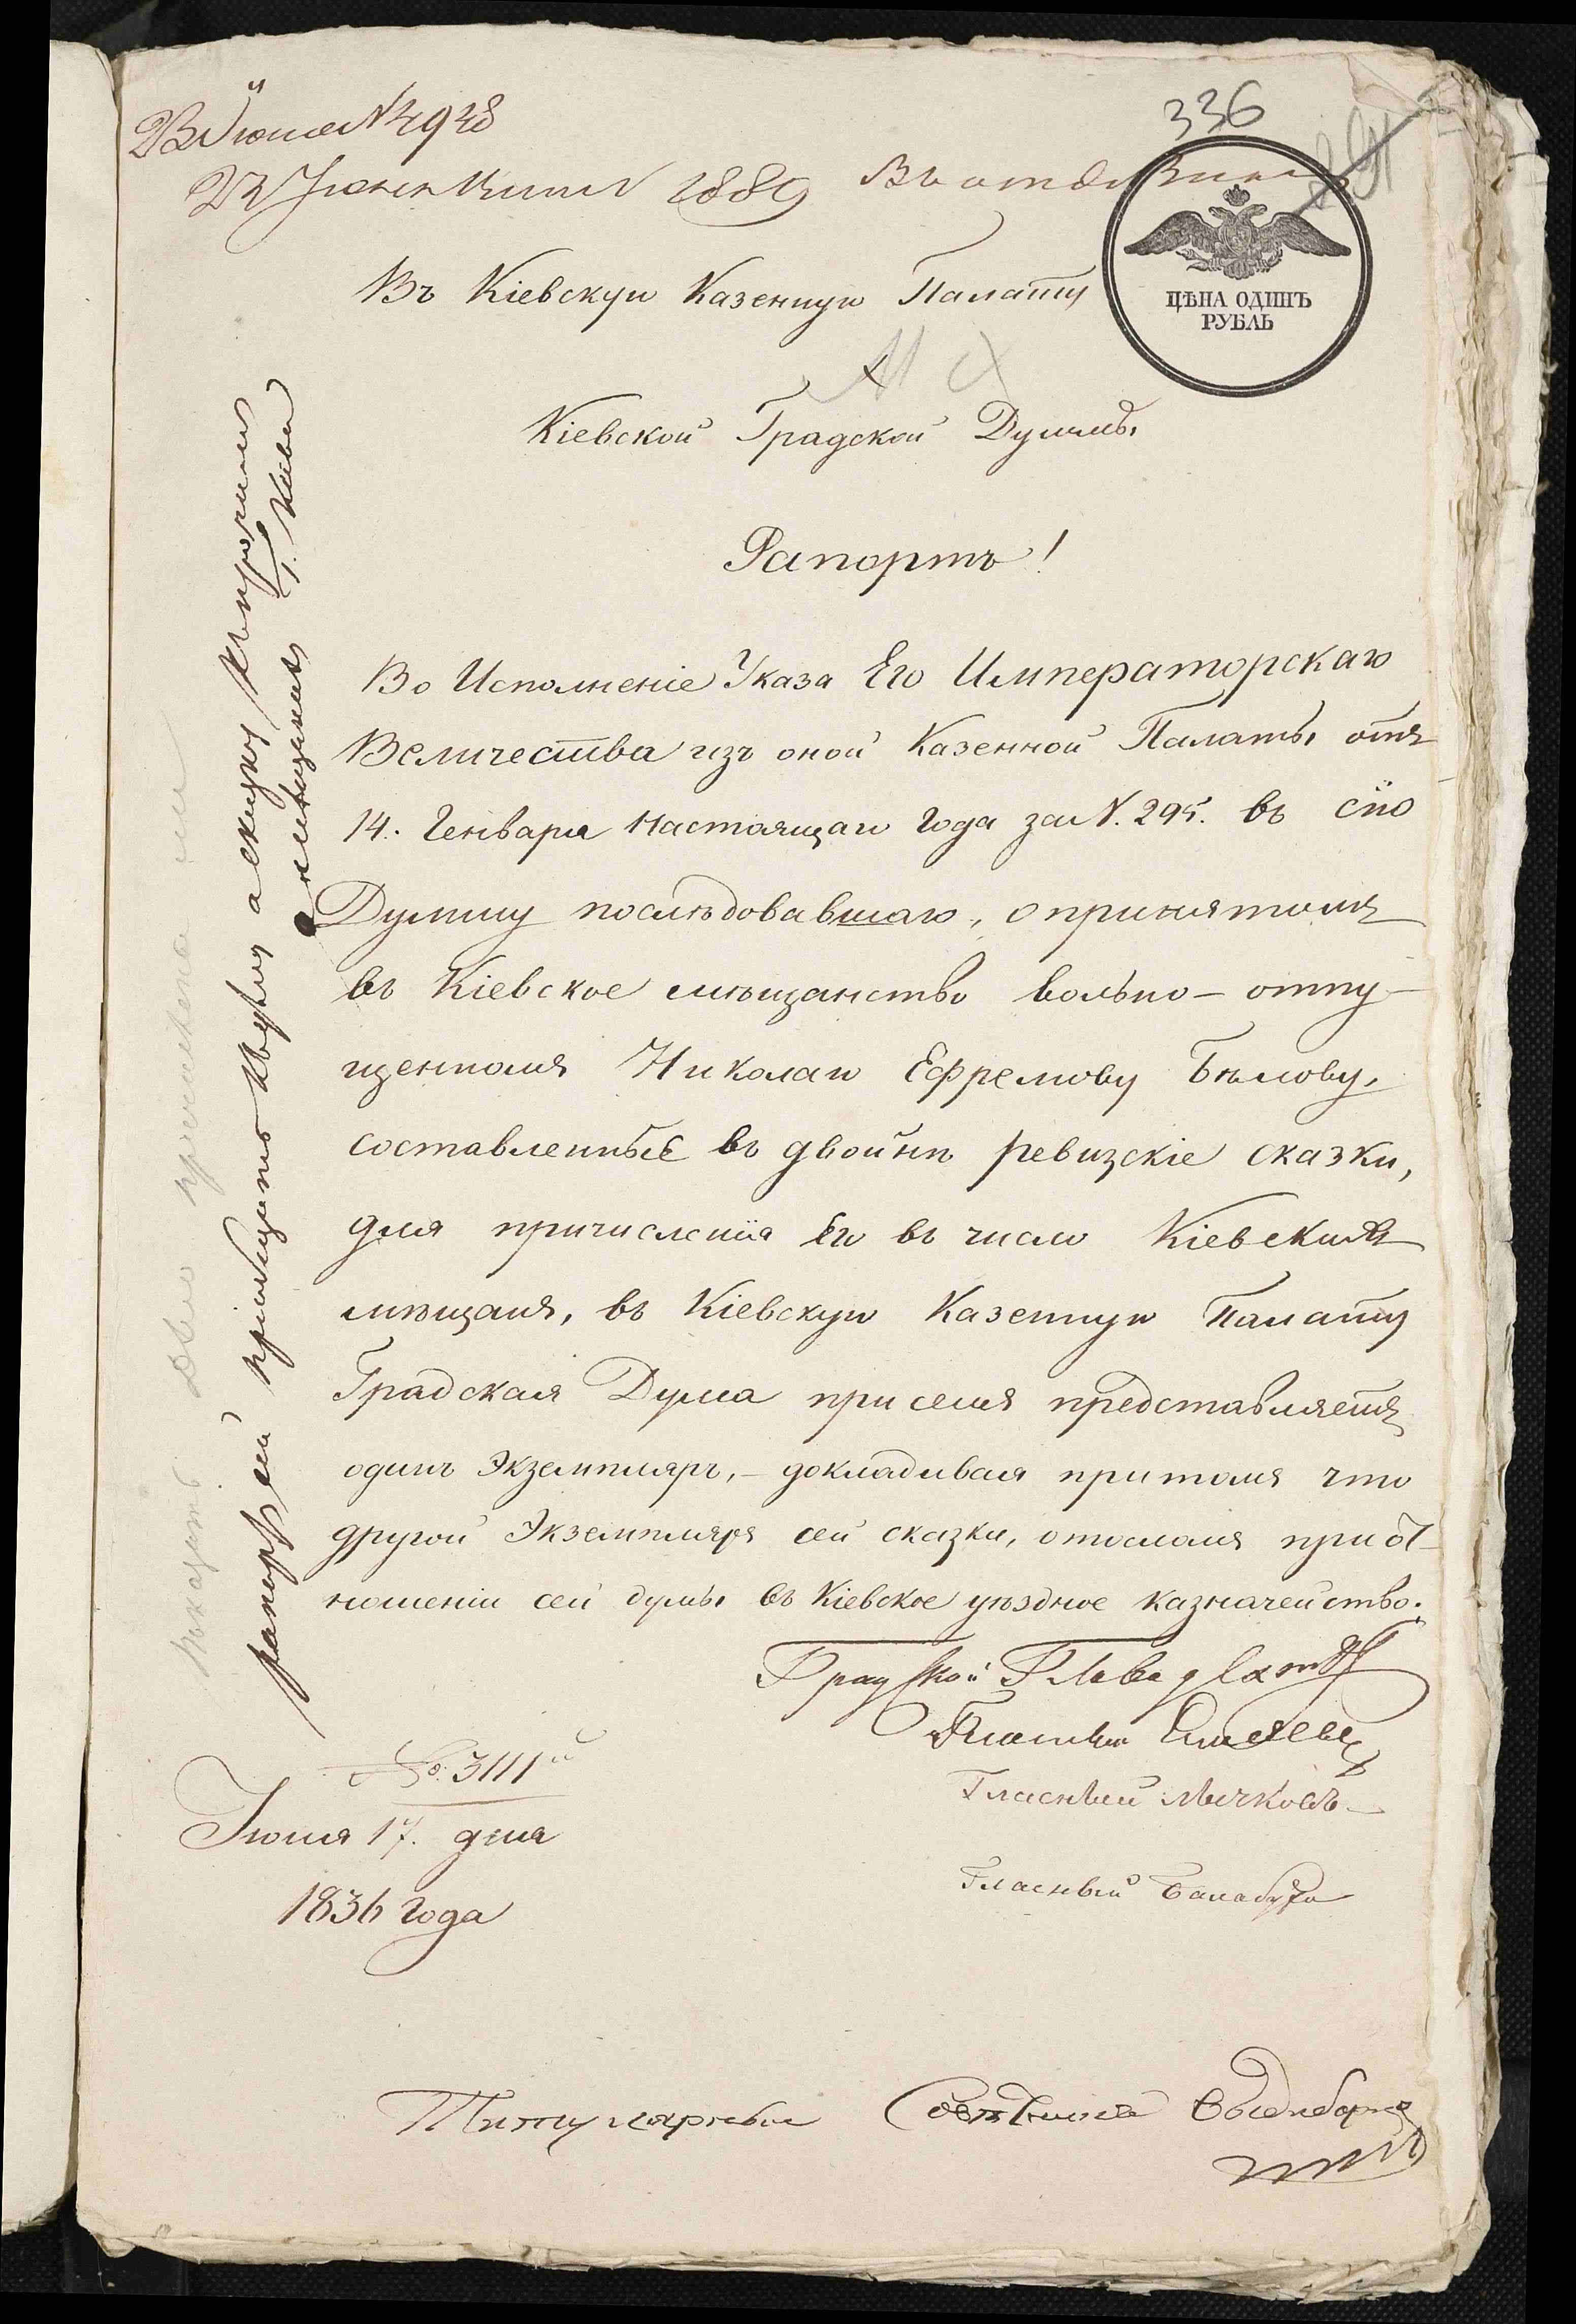 336
1889
Въ Кіевскую Казенную Палату
ЦѢНА ОДИНЪ
РУБЛЬ
Кіевской Градской Думы
Рапортъ!
Во Исполненіе Указа Его Императорскаго
Величества изъ оной Казенной Палаты отъ
14. Генваря настоящаго года за N. 295. въ сію
Думму послѣдовавшаго, о принятомъ
въ Кіевское мѣщанство вольно-отпу-
щенномъ Николаю Ефремову Бѣлову,
составленные въ двойнѣ ревизскіе сказки,
для причисленія Его въ число Кіевскихъ
мѣщанъ, въ Кіевскую Казенную Палату
Градская Дума при семъ представляетъ
одинъ Экземпляръ, - докладывая притомъ что
другой Экземпляръ сей сказки, отосланъ при от-
ношеніи сей думы въ Кіевское уѣздное казначейство.
Градской Глава
Гласный
Гласный Балабуха
№ 3111й
Іюня 17. дня
1836 года
Титулярный Совѣтникъ
рапортъ сей пріобщить
мѣщанъ Г. Кіева